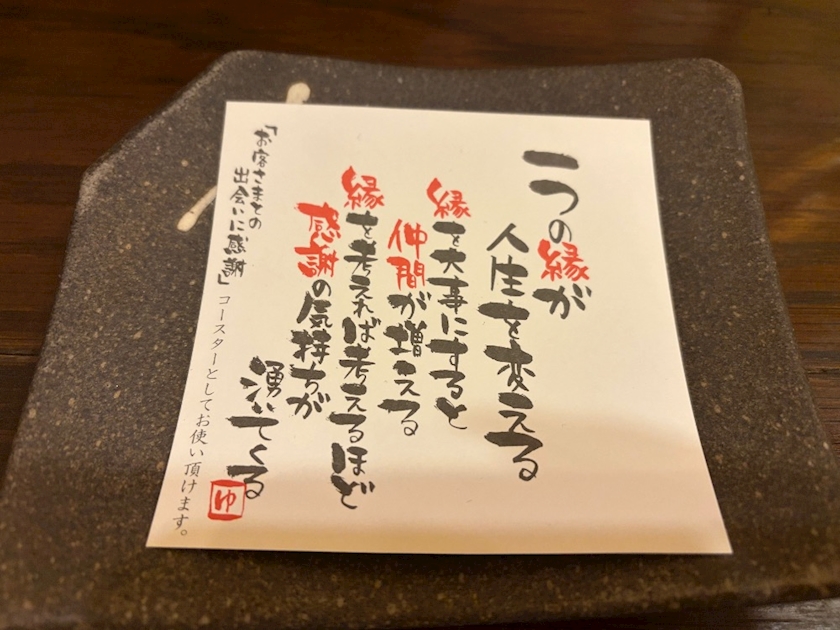 一つの縁が
人生を変える
縁を大事にすると
仲間が増える
縁を考えれば考えるほど
感謝の気持ちが
湧いてくる
ゆ
「お客さまとの
出会いに感謝」
コースターとしてお使い頂けます。